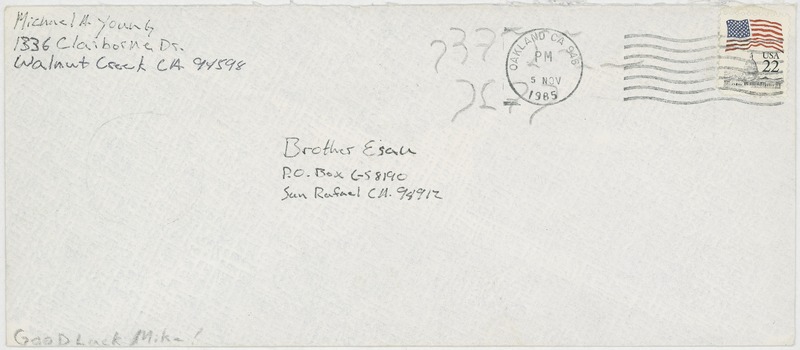 Michael A. Young
1336 Claiborne Dr.
Walnut Creek CA 94598
OAKLAND CA 946
PM
5 NOV
1985
USA
22
Brother Esau
P.O. Box G-58190
San Rafael CA. 94912
Good Luck Mike!